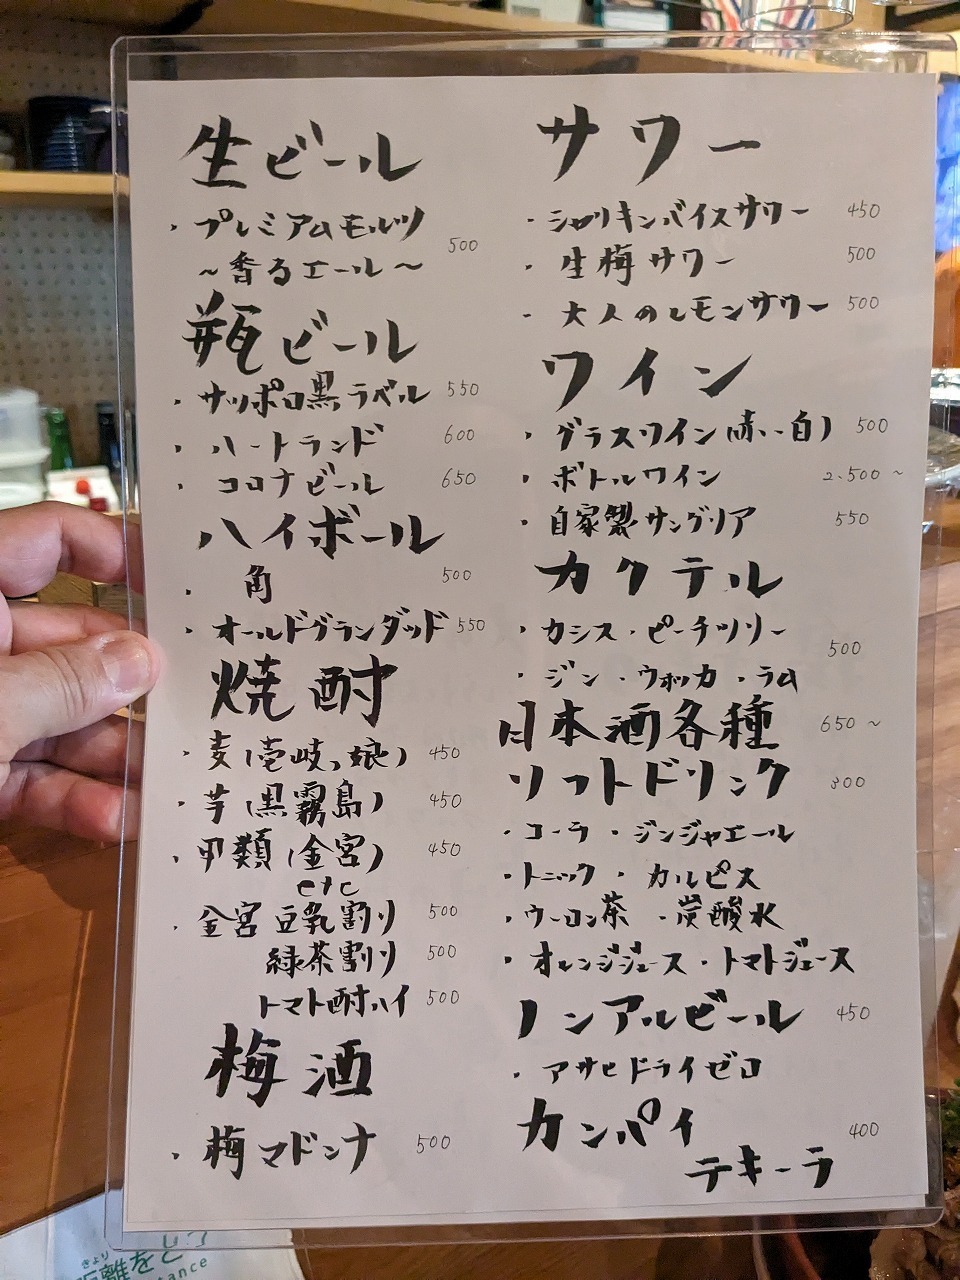 生ビール
・プレミアムモルツ
〜香るエール〜 500
瓶ビール
・サッポロ黒ラベル 550
・ハートランド 600
・コロナビール 650
ハイボール
・角 500
・オールドグランダッド 550
焼酎
・麦(壱岐っ娘) 450
・芋(黒霧島) 450
・甲類(金宮) 450
etc
・金宮 豆乳割り 500
緑茶割り 500
トマト酎ハイ 500
梅酒
・梅マドンナ 500
サワー
・シャリキンバイスサワー 450
・生梅サワー 500
・大人のレモンサワー 500
ワイン
・グラスワイン(赤・白) 500
・ボトルワイン 2,500〜
・自家製サングリア 550
カクテル
・カシス・ピーチツリー
・ジン・ウォッカ・ラム 500
日本酒各種 650〜
ソフトドリンク 300
・コーラ・ジンジャエール
・トニック・カルピス
・ウーロン茶・炭酸水
・オレンジジュース・トマトジュース
ノンアルビール 450
・アサヒドライゼロ
カンパイ
テキーラ 400
きょり
距離をとって